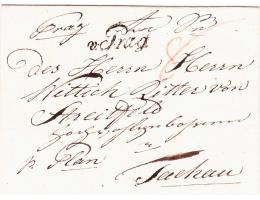 Prag An Sr
v. Prag
des Herrn Herrn
Wittich Ritter von
Streitfeld
Hochwohlgebohren
p. Plan
Tachau